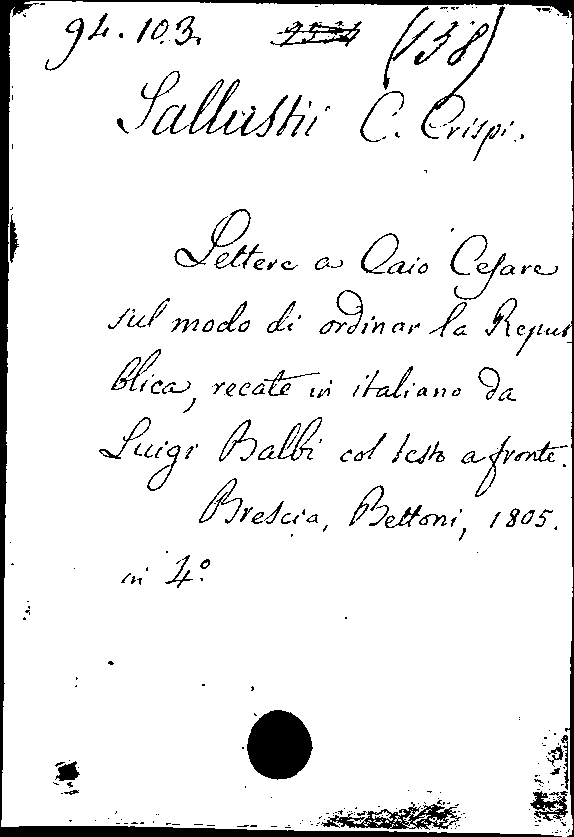 94.103. (138)
Sallustii C. Crispi.
Lettere a Caio Cesare
sul modo di ordinar la Repub
blica, recate in italiano da
Luigi Balbi col testo a fronte.
Brescia, Bettoni, 1805.
in 4º